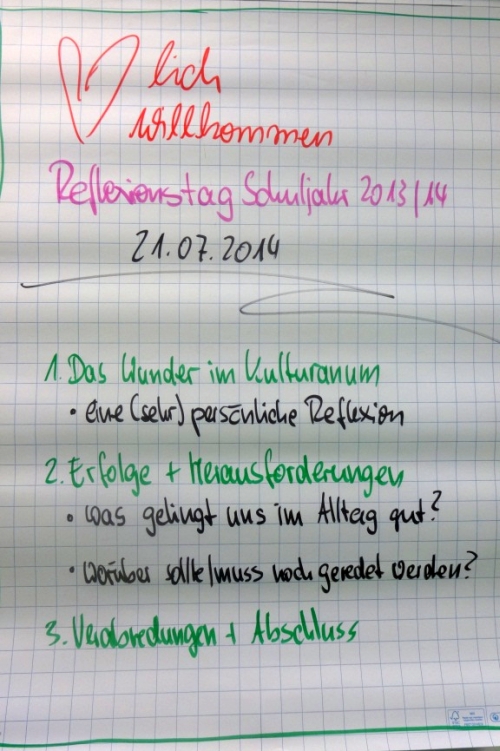 lich
willkommen
Reflexionstag Schuljahr 2013/14
21.07.2014
1. Das Wunder im Kulturanum
• eine (sehr) persönliche Reflexion
2. Erfolge + Herausforderungen
• was gelingt uns im Alltag gut?
• worüber sollte/muss noch geredet werden?
3. Verabredungen + Abschluss